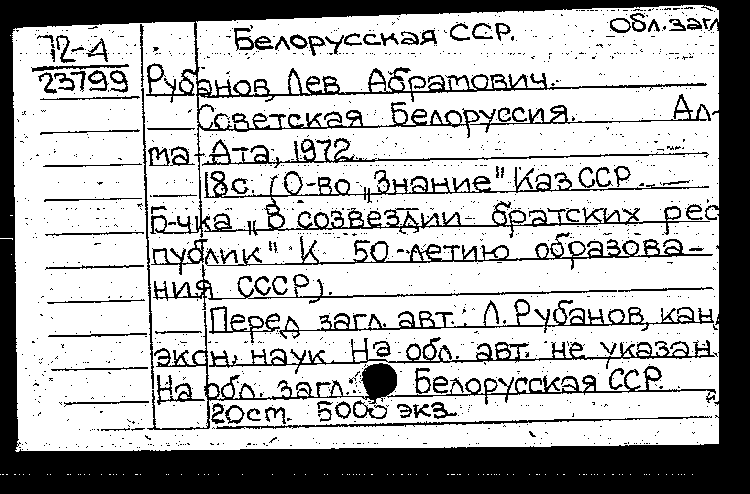 Обл.загл
72-4 Белорусская ССР.
23799 Рубанов, Лев Абрамович.
Советская Белоруссия. Ал-
ма-Ата, 1972
18с. (О-во „Знание" КазССР
Б-чка „В созвездии братских рес
публик" К 50-летию образова-
ния СССР).
Перед загл. авт.: Л. Рубанов, канд
экон. наук. На обл. авт. не указан.
На обл. загл.: Белорусская ССР.
20ст. 5000 экз.